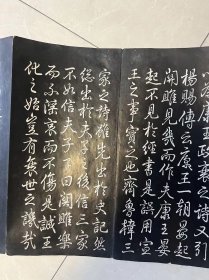 以為康王政衰之詩又引
楊賜傳云康王一朝晏起
關雎見幾而作夫康王晏
起不見於經書是誤用宣
王之事實之也齊魯韓三
家之詩雖先出於史記然
總出於夫子之後信三家
不如信夫子々曰關雎樂
而不淫哀而不傷是誠王
化之始豈有衰世之譏哉